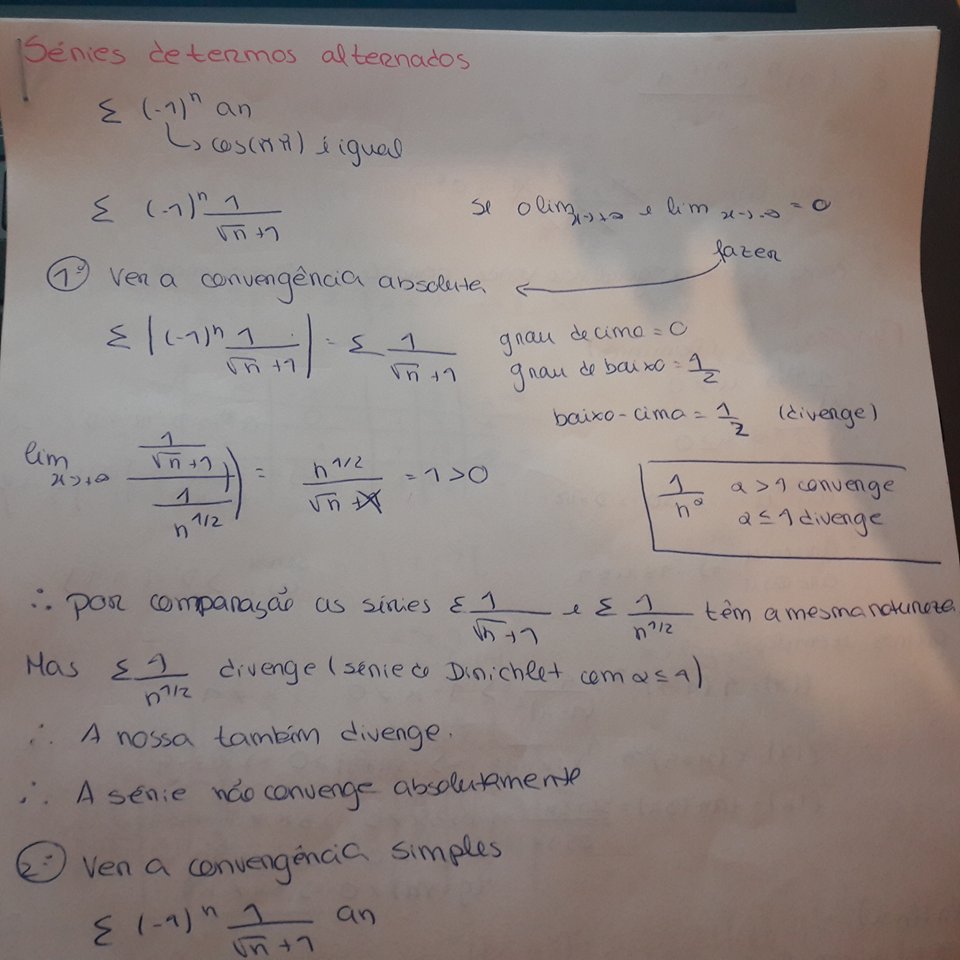 Séries de termos alternados
Σ (-1)^n an
↳ cos(nπ) é igual
Σ (-1)^n 1/(√n+1)
se o lim x→+∞ e lim x→-∞ = 0
fazer
1º Ver a convergência absoluta
Σ |(-1)^n 1/(√n+1)| = Σ 1/(√n+1)
grau de cima = 0
grau de baixo = 1/2
baixo-cima = 1/2 (diverge)
lim x→+∞ (1/(√n+1))/(1/n^1/2)) = n^1/2/(√n+1) = 1>0
1/n^α α>1 converge
α≤1 diverge
∴ por comparação as séries Σ 1/(√n+1) e Σ 1/n^1/2 têm a mesma natureza
Mas Σ 1/n^1/2 diverge (série de Dirichlet com α≤1)
∴ A nossa também diverge.
∴ A série não converge absolutamente
2º Ver a convergência simples
Σ (-1)^n 1/(√n+1) an